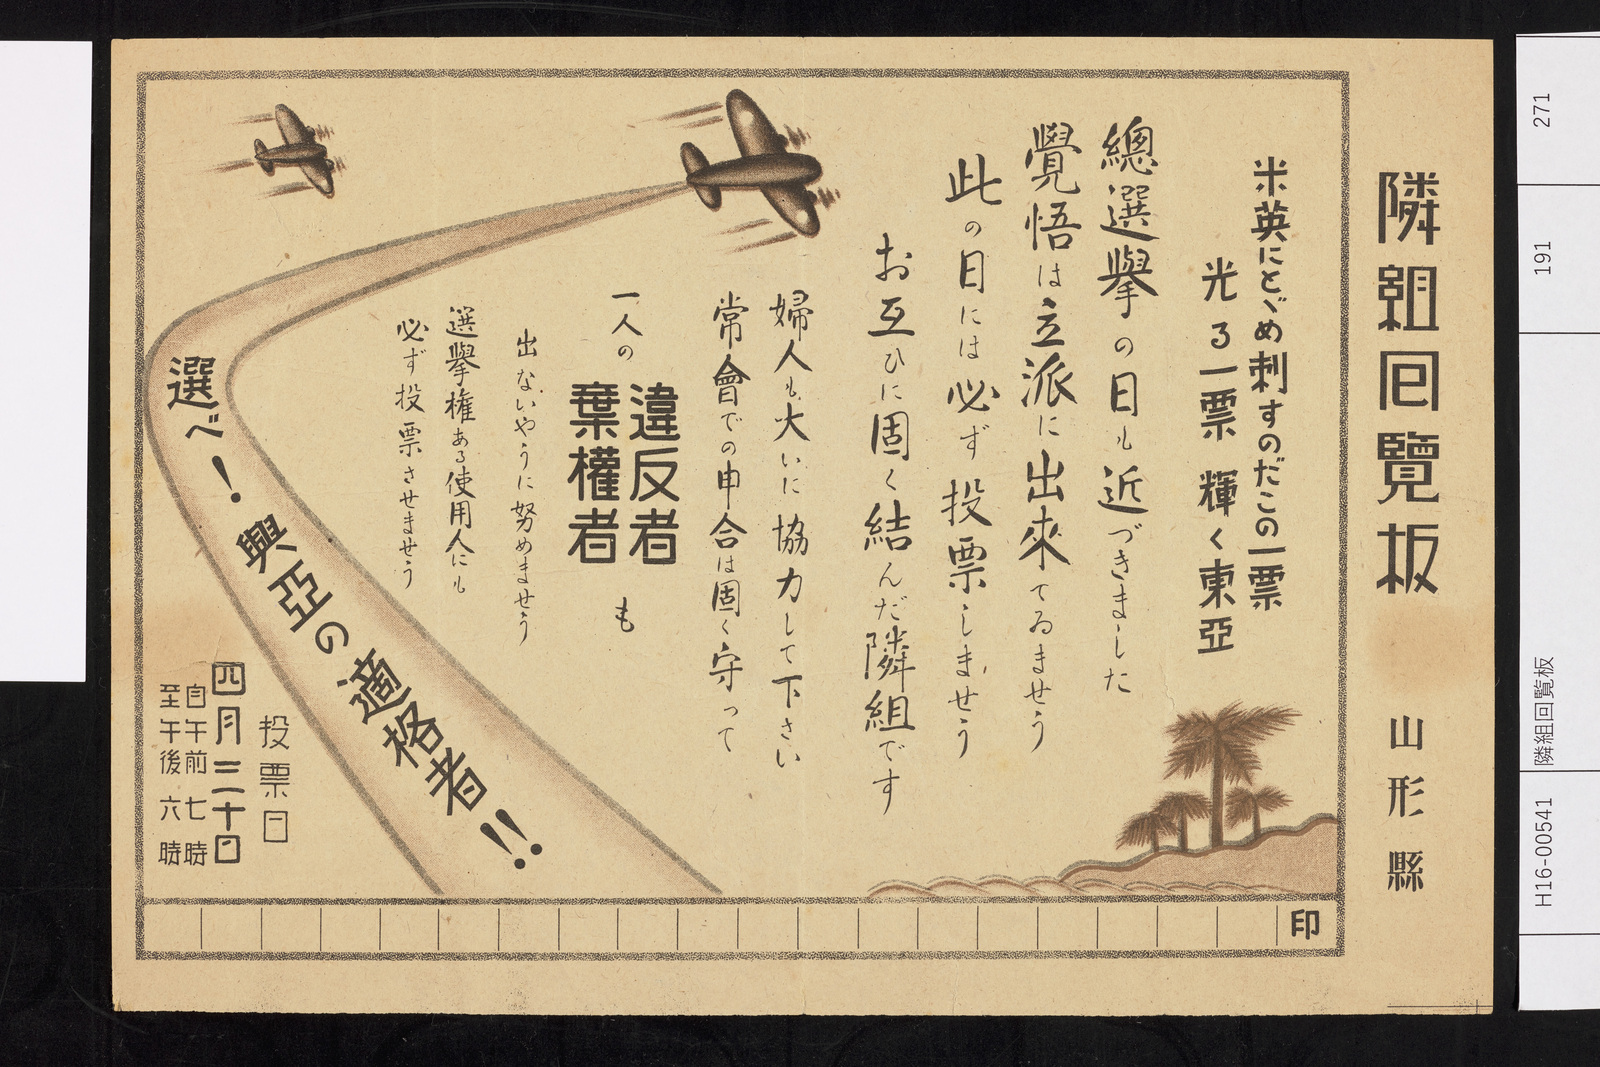 隣組回覧板
山形縣
米英にとゞめ刺すのだこの一票
光る一票 輝く東亞
總選擧の日も近づきました
覺悟は立派に出來てゐませう
此の日には必ず投票しませう
お互ひに固く結んだ隣組です
婦人も大いに協力して下さい
常會での申合は固く守って
一人の
違反者
棄權者
も
出ないやうに努めませう
選擧権ある使用人にも
必ず投票させませう
選べ!興亞の適格者!!
投票日
四月三十日
自午前七時
至午後六時
印
271
191
隣組回覧板
H16-00541